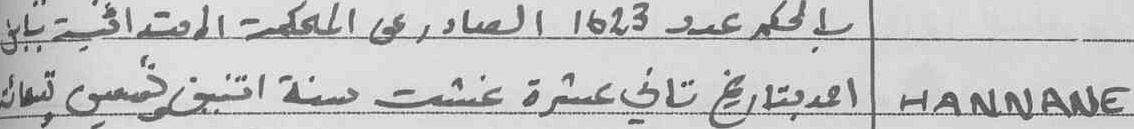 بالحكم عدد 1623 الصادر عن المحكمة الابتدائية
احمد بتاريخ تاني عشرة غشت سنة اتنين وتسعين HANNANE